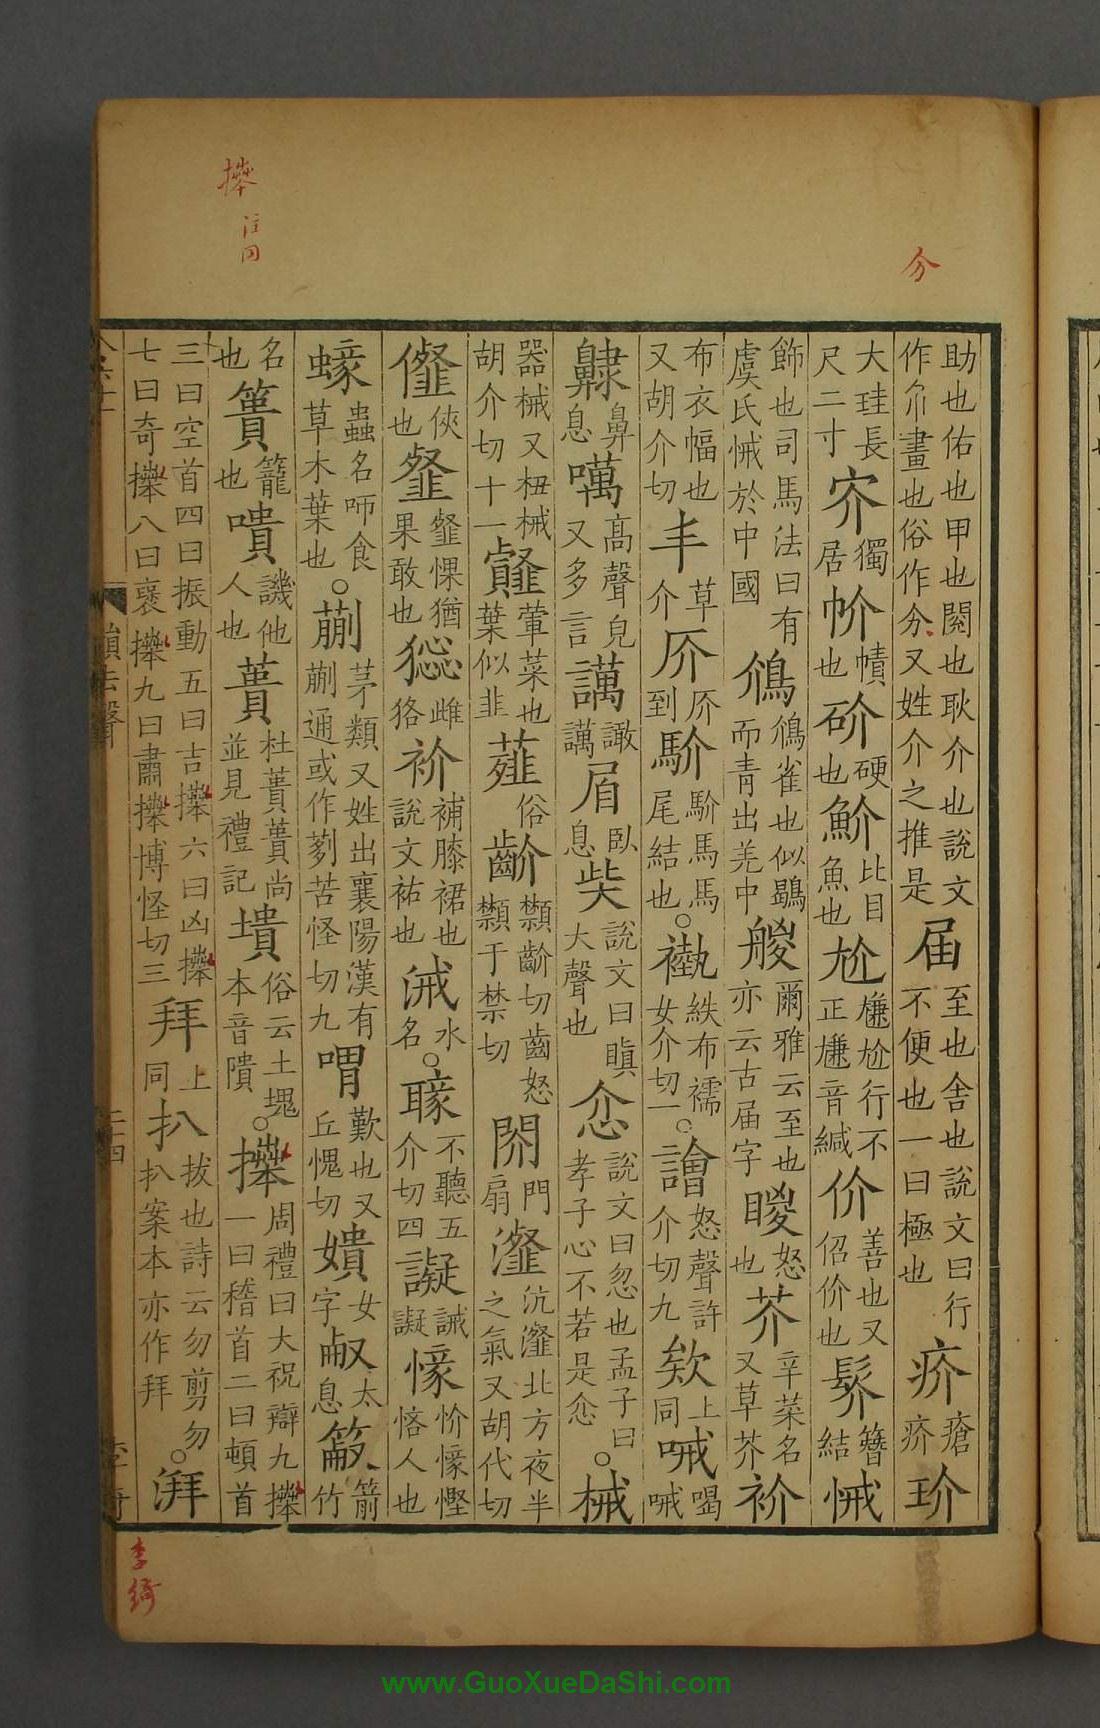 助也佑也甲也閱也耿介也說文作夰畫也俗作分又姓介之推是届至也舍也說文曰行不便也一曰極也疥瘡疥玠
大珪長尺二寸夰獨居䯰幘也砎硬也魪比目魚也尬尲尬行不正尲音緘价善也又佋价也髺簪結悈
飾也司馬法曰有虞氏悈於中國鳻鳻雀也似鶡而青出羌中艐爾雅云至也亦云古届字㬆怒也芥辛菜名又草芥衸
布衣幅也又胡介切丰草介㕅㕅到馻馻馬馬尾結也褹紩布襦女介切一譮怒聲許介切九欸上同喊喝喊
齂鼻息㗲高聲皃又多言譪譀譪眉臥息㗄說文曰瞋大聲也忥說文曰忽也孟子曰孝子心不若是忥械
器械又杻械胡介切十一䪥葷菜也葉似韭薤俗齘顡齘切齒怒顡于禁切閞門扇瀣沆瀣北方夜半之氣又胡代切
㒠俠也䪥䪥惈猶果敢也㺀雌狢衸補膝裙也說文祐也㳦水名䏆不聽五介切四譺誡譺㦣忦㦣慳悋人也
蝝蟲名㕷食草木葉也蒯茅類又姓出襄陽漢有蒯通或作䓒苦怪切九喟歎也又丘愧切嬇女字㕟太息䈛箭竹
名也簣籠也嘳譏他人也蕢杜蕢蕢尚並見禮記墤俗云土塊本音隤㩧周禮曰大祝辯九㩧一曰稽首二曰頓首
三曰空首四曰振動五曰吉㩧六曰凶㩧七曰奇㩧八曰襃㩧九曰肅㩧博怪切三拜上同扒拔也詩云勿剪勿扒案本亦作拜湃
去聲
二十四
分
注同
李綺
www.GuoXueDaShi.com